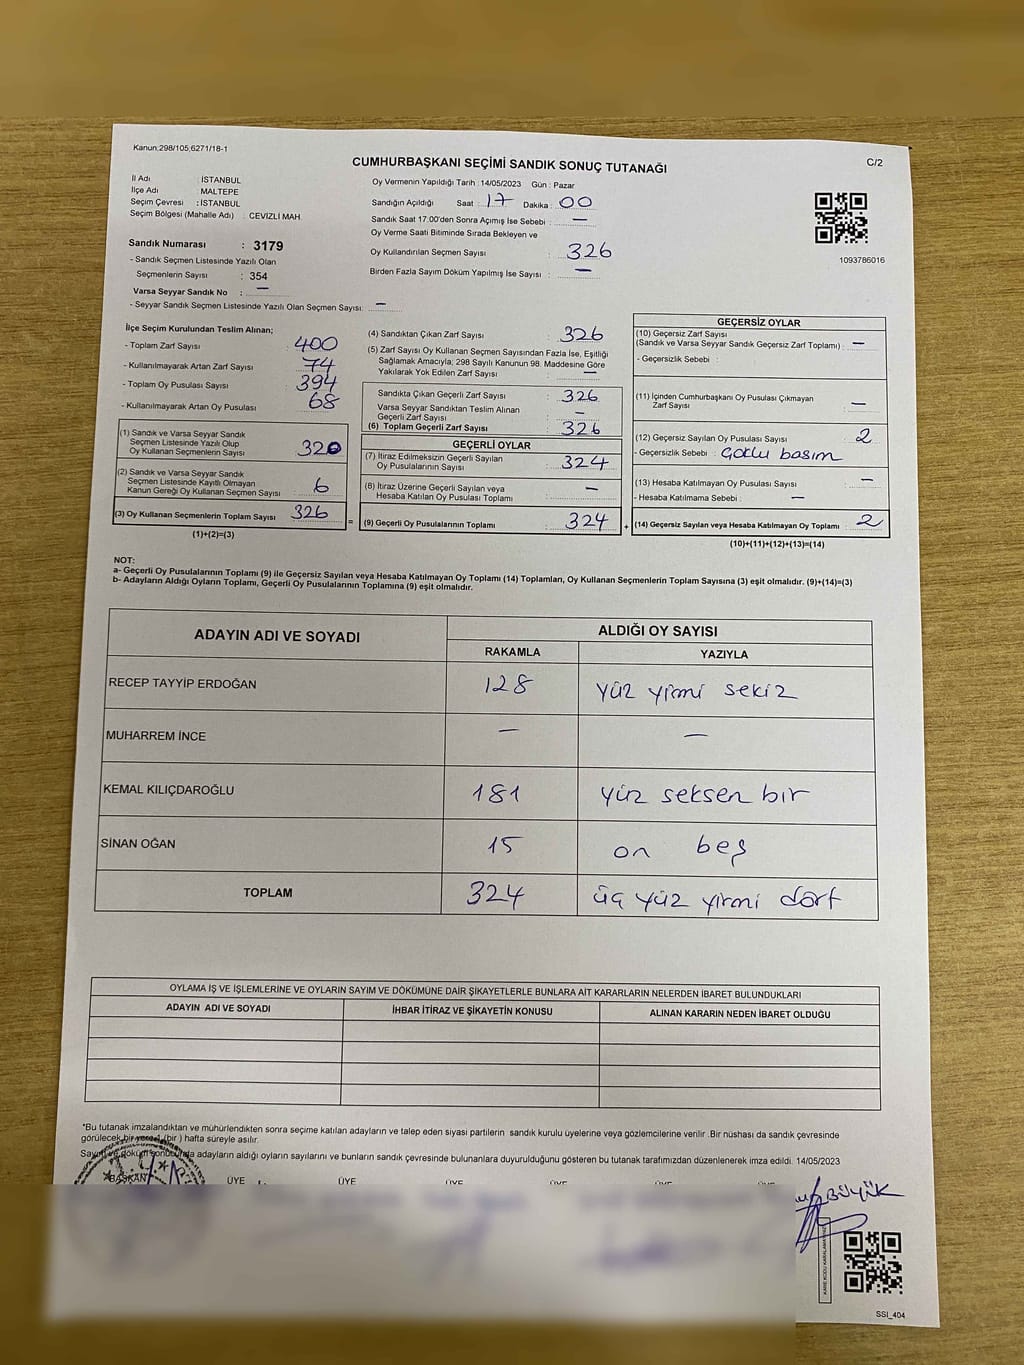 Kanun:298/105;6271/18-1
CUMHURBAŞKANI SEÇİMİ SANDIK SONUÇ TUTANAĞI
C/2
İl Adı : İSTANBUL
İlçe Adı : MALTEPE
Seçim Çevresi : İSTANBUL
Seçim Bölgesi (Mahalle Adı) : CEVİZLİ MAH.
Sandık Numarası : 3179
- Sandık Seçmen Listesinde Yazılı Olan
Seçmenlerin Sayısı : 354
Varsa Seyyar Sandık No : —
- Seyyar Sandık Seçmen Listesinde Yazılı Olan Seçmen Sayısı: —
Oy Vermenin Yapıldığı Tarih :14/05/2023 Gün : Pazar
Sandığın Açıldığı Saat : 17 Dakika : 00
Sandık Saat 17.00'den Sonra Açımış İse Sebebi : —
Oy Verme Saati Bitiminde Sırada Bekleyen ve
Oy Kullandırılan Seçmen Sayısı : 326
Birden Fazla Sayım Döküm Yapılmış İse Sayısı : —
1093786016
İlçe Seçim Kurulundan Teslim Alınan;
- Toplam Zarf Sayısı : 400
- Kullanılmayarak Artan Zarf Sayısı : 74
- Toplam Oy Pusulası Sayısı : 394
- Kullanılmayarak Artan Oy Pusulası : 68
(1) Sandık ve Varsa Seyyar Sandık
Seçmen Listesinde Yazılı Olup
Oy Kullanan Seçmenlerin Sayısı : 320
(2) Sandık ve Varsa Seyyar Sandık
Seçmen Listesinde Kayıtlı Olmayan
Kanun Gereği Oy Kullanan Seçmen Sayısı : 6
(3) Oy Kullanan Seçmenlerin Toplam Sayısı : 326
(1)+(2)=(3)
(4) Sandıktan Çıkan Zarf Sayısı : 326
(5) Zarf Sayısı Oy Kullanan Seçmen Sayısından Fazla İse, Eşitliği
Sağlamak Amacıyla; 298 Sayılı Kanunun 98. Maddesine Göre
Yakılarak Yok Edilen Zarf Sayısı : —
Sandıkta Çıkan Geçerli Zarf Sayısı : 326
Varsa Seyyar Sandıktan Teslim Alınan
Geçerli Zarf Sayısı : —
(6) Toplam Geçerli Zarf Sayısı : 326
GEÇERLİ OYLAR
(7) İtiraz Edilmeksizin Geçerli Sayılan
Oy Pusulalarının Sayısı : 324
(8) İtiraz Üzerine Geçerli Sayılan veya
Hesaba Katılan Oy Pusulası Toplamı : —
= (9) Geçerli Oy Pusulalarının Toplamı : 324
GEÇERSİZ OYLAR
(10) Geçersiz Zarf Sayısı
(Sandık ve Varsa Seyyar Sandık Geçersiz Zarf Toplamı) : —
- Geçersizlik Sebebi :
(11) İçinden Cumhurbaşkanı Oy Pusulası Çıkmayan
Zarf Sayısı : —
(12) Geçersiz Sayılan Oy Pusulası Sayısı : 2
- Geçersizlik Sebebi : Çoklu basım
(13) Hesaba Katılmayan Oy Pusulası Sayısı : —
- Hesaba Katılmama Sebebi : —
+ (14) Geçersiz Sayılan veya Hesaba Katılmayan Oy Toplamı : 2
(10)+(11)+(12)+(13)=(14)
NOT:
a- Geçerli Oy Pusulalarının Toplamı (9) ile Geçersiz Sayılan veya Hesaba Katılmayan Oy Toplamı (14) Toplamları, Oy Kullanan Seçmenlerin Toplam Sayısına (3) eşit olmalıdır. (9)+(14)=(3)
b- Adayların Aldığı Oyların Toplamı, Geçerli Oy Pusulalarının Toplamına (9) eşit olmalıdır.
ADAYIN ADI VE SOYADI ALDIĞI OY SAYISI
RAKAMLA YAZIYLA
RECEP TAYYİP ERDOĞAN 128 yüz yirmi sekiz
MUHARREM İNCE — —
KEMAL KILIÇDAROĞLU 181 yüz seksen bir
SİNAN OĞAN 15 on beş
TOPLAM 324 üç yüz yirmi dört
OYLAMA İŞ VE İŞLEMLERİNE VE OYLARIN SAYIM VE DÖKÜMÜNE DAİR ŞİKAYETLERLE BUNLARA AİT KARARLARIN NELERDEN İBARET BULUNDUKLARI
ADAYIN ADI VE SOYADI İHBAR İTİRAZ VE ŞİKAYETİN KONUSU ALINAN KARARIN NEDEN İBARET OLDUĞU
*Bu tutanak imzalandıktan ve mühürlendikten sonra seçime katılan adayların ve talep eden siyasi partilerin sandık kurulu üyelerine veya gözlemcilerine verilir .Bir nüshası da sandık çevresinde
görülecek bir yere 1 (bir ) hafta süreyle asılır.
Sayım ve döküm sonucunda adayların aldığı oyların sayılarını ve bunların sandık çevresinde bulunanlara duyurulduğunu gösteren bu tutanak tarafımızdan düzenlenerek imza edildi. 14/05/2023
BAŞKAN ÜYE ÜYE ÜYE ÜYE ÜYE ÜYE
BÜYÜK
SSI_404